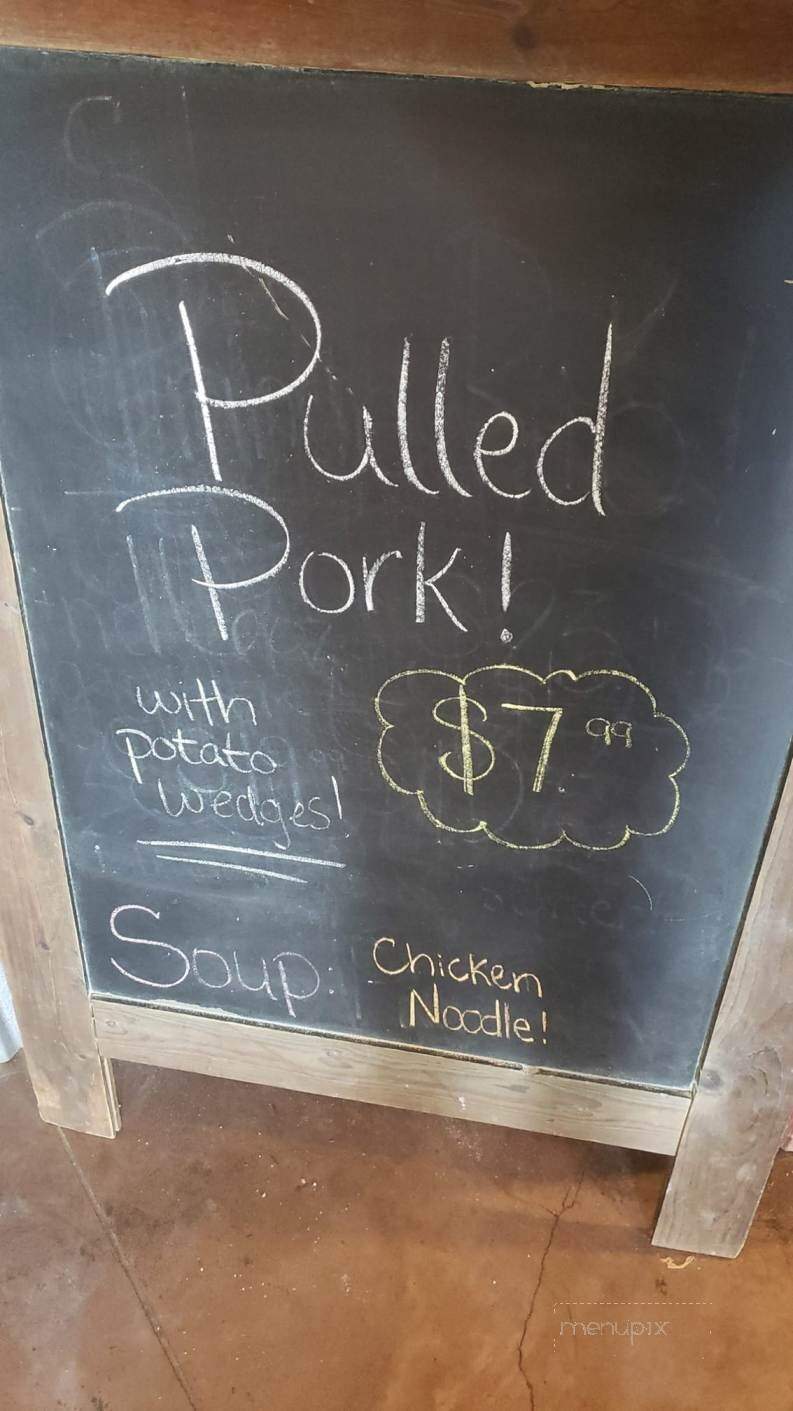 Pulled
Pork!
with
potato
wedges!
$7.99
Soup:
Chicken
Noodle!
menupix